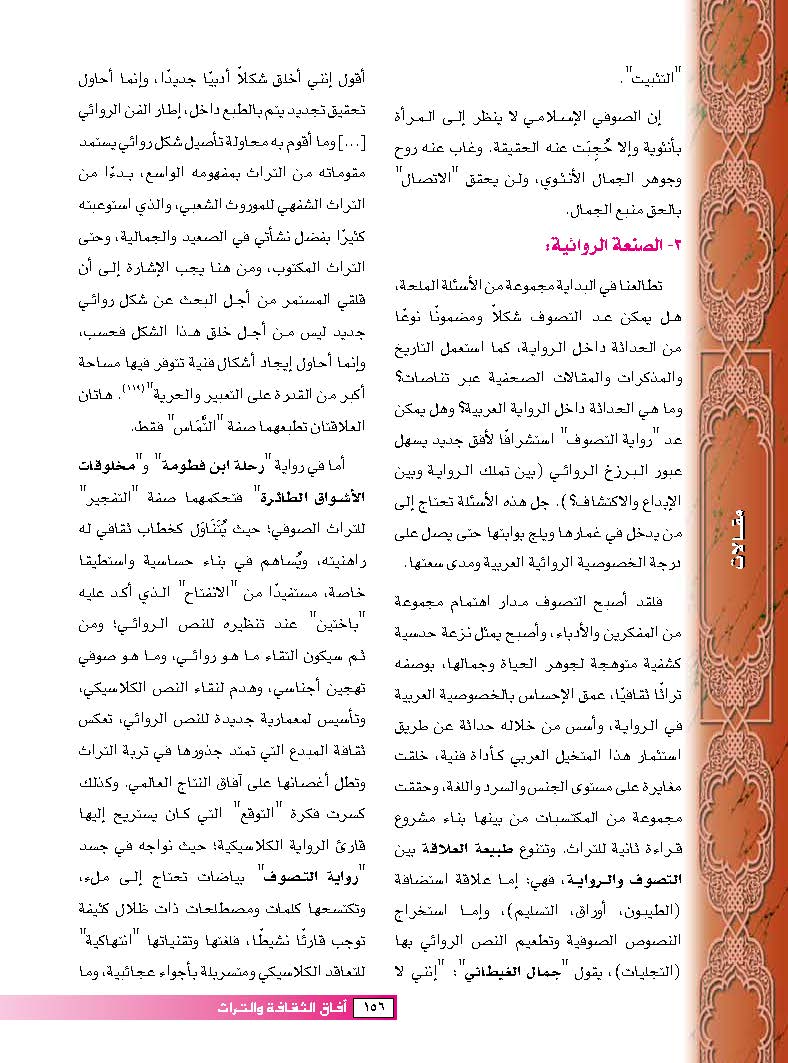 "التثبيت".
إن الصوفي الإسلامي لا ينظر إلى المرأة
بأنثوية وإلا حُجِبَت عنه الحقيقة. وغاب عنه روح
وجوهر الجمال الأنثوي، ولن يحقق "الاتصال"
بالحق منبع الجمال.
٢- الصنعة الروائية:
تطالعنا في البداية مجموعة من الأسئلة الملحة،
هل يمكن عد التصوف شكلاً ومضمونًا نوعًا
من الحداثة داخل الرواية، كما استعمل التاريخ
والمذكرات والمقالات الصحفية عبر تناصات؟
وما هي الحداثة داخل الرواية العربية؟ وهل يمكن
عد "رواية التصوف" استشرافًا لأفق جديد يسهل
عبور البرزخ الروائي (بين تملك الرواية وبين
الإبداع والاكتشاف؟). جل هذه الأسئلة تحتاج إلى
من يدخل في غمارها ويلج بوابتها حتى يصل على
درجة الخصوصية الروائية العربية ومدى سعتها.
فلقد أصبح التصوف مدار اهتمام مجموعة
من المفكرين والأدباء، وأصبح يمثل نزعة حدسية
كشفية متوهجة لجوهر الحياة وجمالها، بوصفه
تراثًا ثقافيًا، عمق الإحساس بالخصوصية العربية
في الرواية، وأسس من خلاله حداثة عن طريق
استثمار هذا المتخيل العربي كأداة فنية، خلقت
مغايرة على مستوى الجنس والسرد واللغة، وحققت
مجموعة من المكتسبات من بينها بناء مشروع
قراءة ثانية للتراث. وتتنوع طبيعة العلاقة بين
التصوف والرواية، فهي: إما علاقة استضافة
(الطيبون، أوراق، التسليم)، وإما استخراج
النصوص الصوفية وتطعيم النص الروائي بها
(التجليات)، يقول "جمال الغيطاني": "إنني لا
أقول إنني أخلق شكلاً أدبيًا جديدًا، وإنما أحاول
تحقيق تجديد يتم بالطبع داخل، إطار الفن الروائي
[...] وما أقوم به محاولة تأصيل شكل روائي يستمد
مقوماته من التراث بمفهومه الواسع، بدءًا من
التراث الشفهي للموروث الشعبي، والذي استوعبته
كثيرًا بفضل نشأتي في الصعيد والجمالية، وحتى
التراث المكتوب، ومن هنا يجب الإشارة إلى أن
قلقي المستمر من أجل البحث عن شكل روائي
جديد ليس من أجل خلق هذا الشكل فحسب،
وإنما أحاول إيجاد أشكال فنية تتوفر فيها مساحة
أكبر من القدرة على التعبير والحرية"(١١٩). هاتان
العلاقتان تطبعهما صفة "التَّمَاس" فقط.
أما في رواية "رحلة ابن فطومة" و"مخلوقات
الأشواق الطائرة" فتحكمهما صفة "التفجير"
للتراث الصوفي؛ حيث يُتَنَاوَل كخطاب ثقافي له
راهنيته، ويُساهم في بناء حساسية واستطيقا
خاصة، مستفيدًا من "الانفتاح" الذي أكد عليه
"باختين" عند تنظيره للنص الروائي؛ ومن
ثم سيكون التقاء ما هو روائي، وما هو صوفي
تهجين أجناسي، وهدم لنقاء النص الكلاسيكي،
وتأسيس لمعمارية جديدة للنص الروائي، تعكس
ثقافة المبدع التي تمتد جذورها في تربة التراث
وتطل أغصانها على آفاق النتاج العالمي. وكذلك
كسرت فكرة "التوقع" التي كان يستريح إليها
قارئ الرواية الكلاسيكية؛ حيث نواجه في جسد
"رواية التصوف" بياضات تحتاج إلى ملء،
وتكتسحها كلمات ومصطلحات ذات ظلال كثيفة
توجب قارئًا نشيطًا، فلغتها وتقنياتها "انتهاكية"
للتعاقد الكلاسيكي ومتسربلة بأجواء عجائبية، وما
مقالات
١٥٦ آفاق الثقافة والتراث